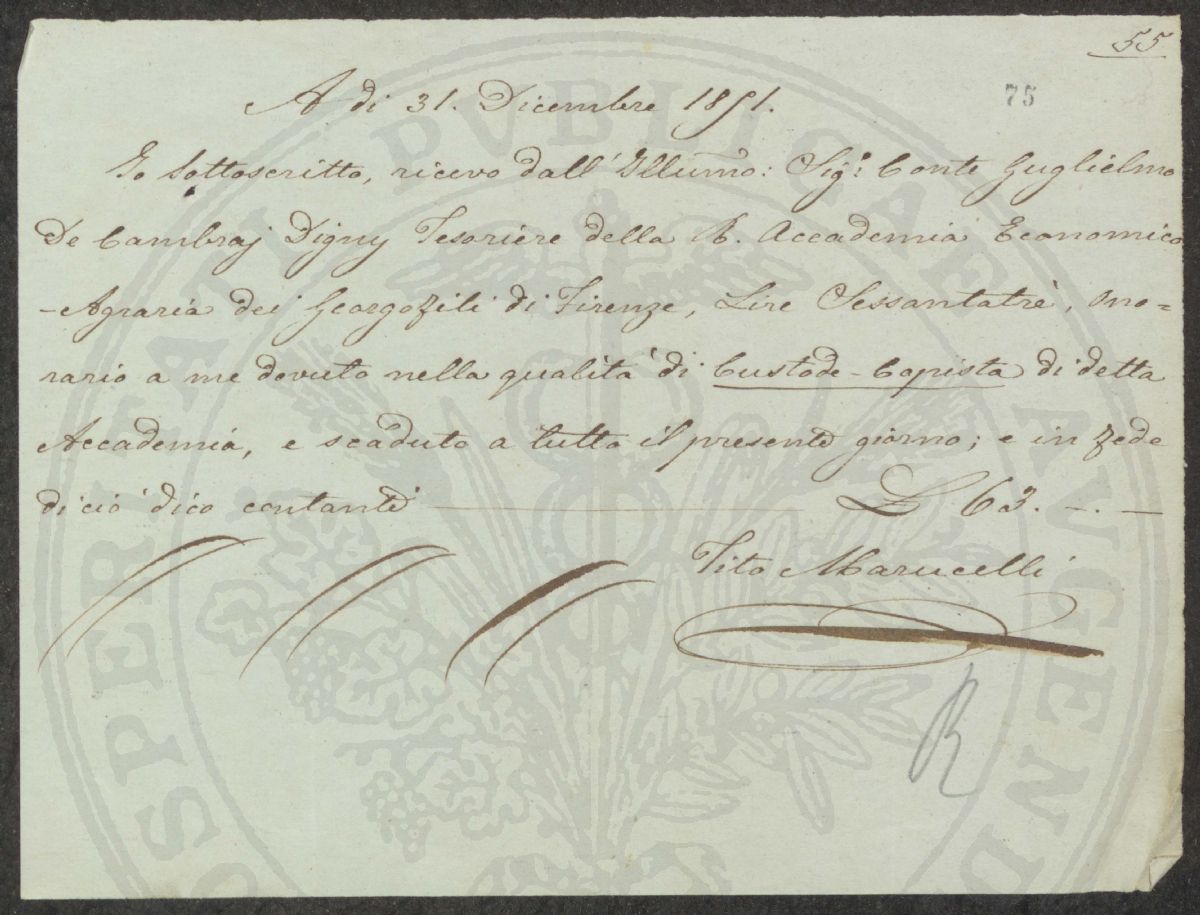 55
75
A di 31. Dicembre 1851.
Io Sottoscritto, ricevo dall'Illumo: Sigr: Conte Guglielmo
De Cambraj Digny Tesoriere della R. Accademia Economico
-Agraria dei Georgofili di Firenze, Lire Sessantatrè, ono=
rario a me dovuto nella qualità di Custode-Copista di detta
Accademia, e scaduto a tutto il presente giorno; e in fede
di ciò dico contanti L. 63. -.-
Tito Marucelli
R
PROSPERITATI PVBLICAE AVGENDAE